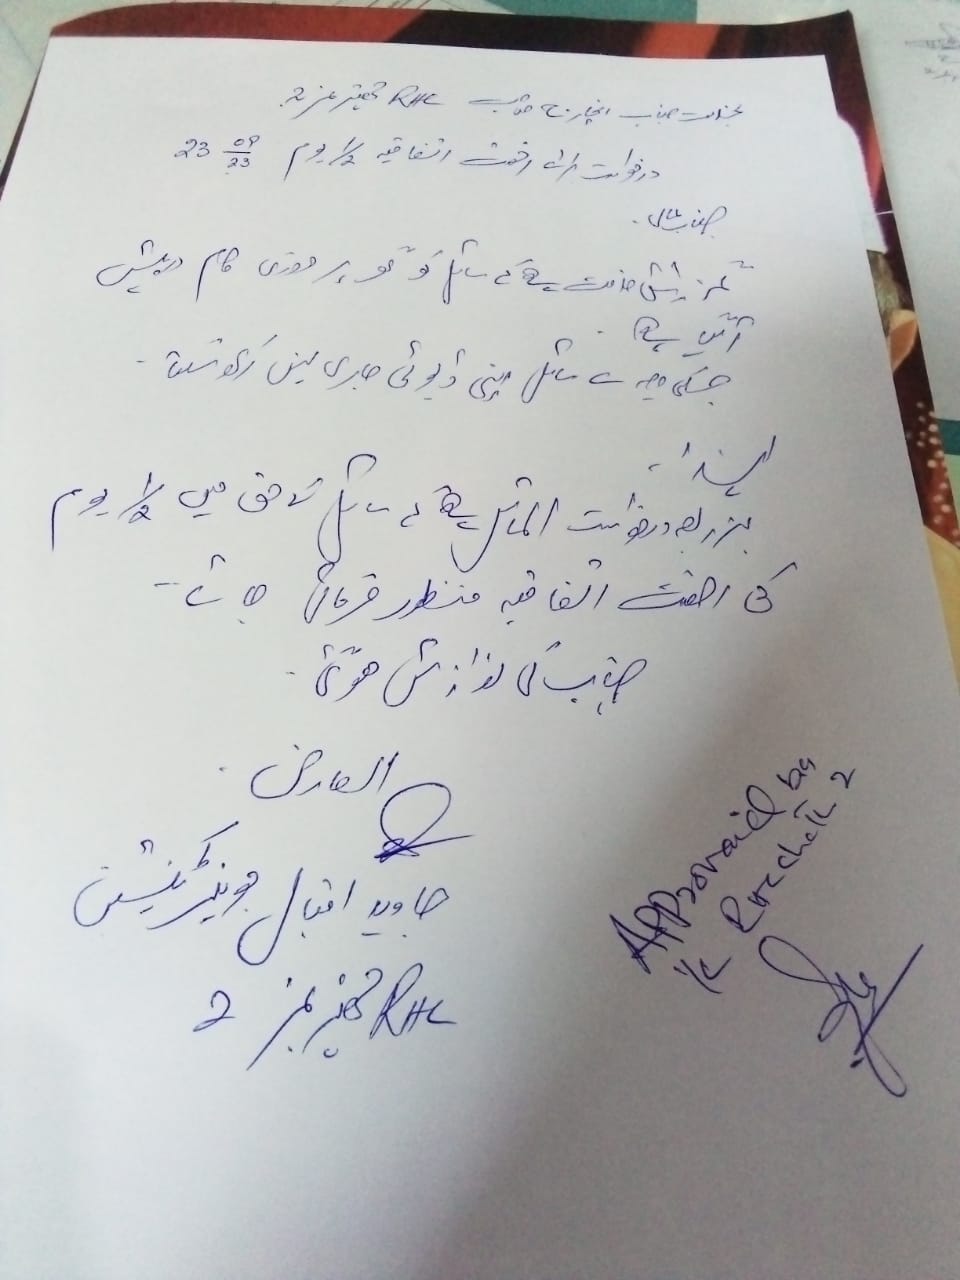 بخدمت جناب انچارج صاحب RHC نمبر 2
درخواست برائے رخصت اتفاقیہ 1/2 یوم 23 09/23
جناب عالی۔
گزارش خدمت ہے کے سائل کو گھر پر ضروری کام درپیش
آگیا ہے۔
جسکی وجہ سے سائل اپنی ڈیوٹی جاری نہیں رکھ سکتا۔
لہذا۔
بذریعہ درخواست التماس ہے کے سائل کے حق میں 1/2 یوم
کی رخصت اتفاقیہ منظور فرمائی جائے۔
جناب کی نوازش ہوگی۔
العارض
جاوید اقبال جونیئر ٹیکنیشن
RHC نمبر 2
Approvaied by
i/c RHC 2